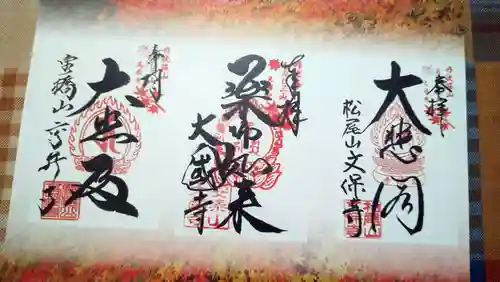 奉拝
大悲閣
松尾山文保寺
奉拝
薬師如来
大國寺
奉拝
大悲殿
宝橋山高蔵寺